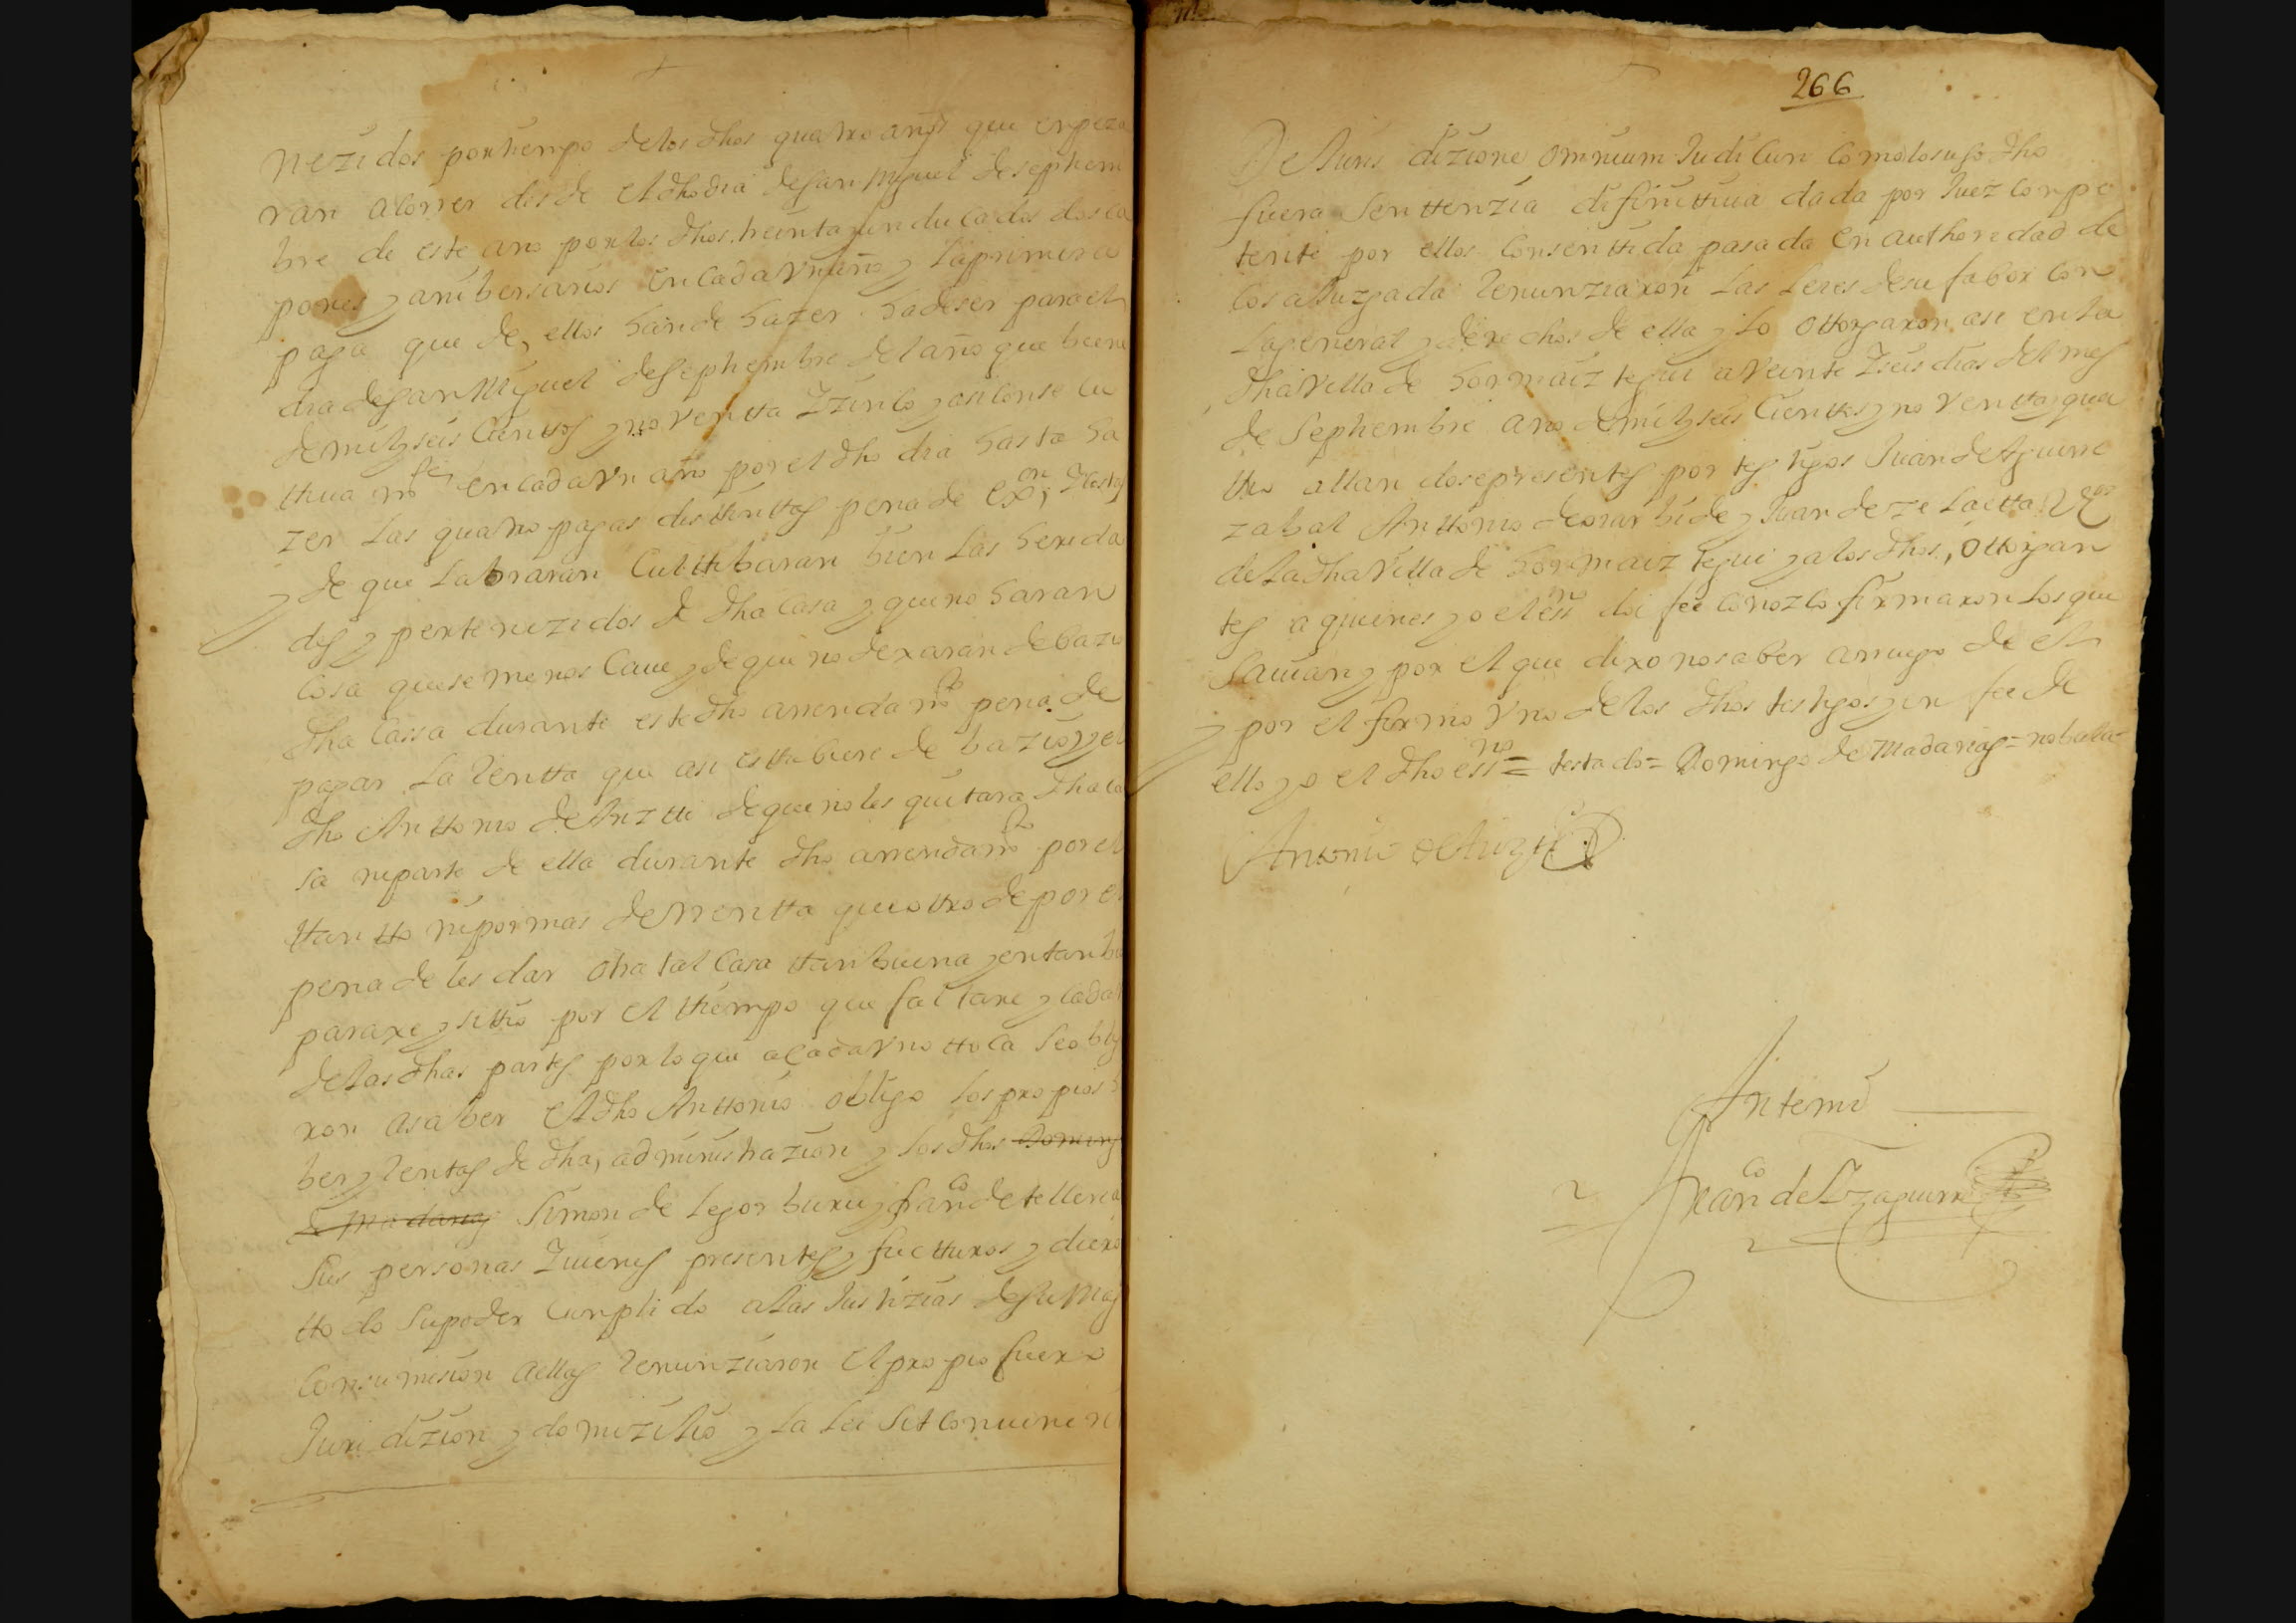 nezidos por tiempo de los dhos quatro años que enpeza
ran a correr desde el dho dia de San Miguel de septiem
bre de este año por los dhos treinta y un ducados dos ca
pones y anibersarios en cada vn año y la primera
paga que de ellos han de hazer ha de ser para el
dia de San Miguel de Septiembre del año que biene
de mil y seis cientos y noventta y zinco y asi consecu
tiuamte en cada vn año por el dho dia hasta ha
zer las quatro pagas distinttas pena de exon y costas
y de que labraran culttibaran bien las hereda
des y pertenezidos de dha casa y que no haran
cosa que se menos caue y de que no dexaran de bazio
dha cassa durante este dho arrendamto pena de
pagar la rentta que asi esttubiere de bazio y el
dho Anttonio de Auztti de que no les quitara dha ca
sa ni parte de ella durante dho arrendamto por el
ttantto ni por mas de rrentta que ottro de por e
pena de les dar otra tal casa ttan buena y en tan bu
paraxe y sittio por el ttiempo que faltare y cada
de las dhas partes por lo que a cada vno ttoca se oblig
ron asaber el dho Anttonio obligo los propios
ber y rentas de dha administrazion y los dhos Doming
de Madariag Simon de Legorburu y franco de telleria
sus personas y uienes presentes y fuctturos y diero
ttodo su poder cunplido a las Justizias de su Mag
con sumision a ellas renunziaron el propio fuero
Juridizion y domizilio y la lei sit conuenerit
266
De Juris dizione omnium Judicun como lo suso dho
fuera senttenzia difinittiua dada por Juez conpe
tente por ellos consenttida pasada en authoridad de
cosa Juzgada renunziaron las leies de su fabor con
la general y derechos de ella y lo ottorgaron asi en la
dha villa de hormaiztegui a veinte y seis dias del mes
de Septiembre año de mil y seis cienttos y noventta y qua
ttro allandose presentes por testigos Juan de Aguirre
zabal Anttonio de oiarbide y Juan de zelaetta vos
de la dha villa de hormaiztegui y a los dhos ottorgan
tes a quienes yo el essno doi fee conozco firmaron los que
sauian y por el que dixo no saber a ruego de el
y por el firmo vno de los dhos testigos y en fee de
ello yo el dho essno = testado = Domingo de Madariag = no bala =
Antonio de Auzti
Antemi
Franco de Yzaguirre